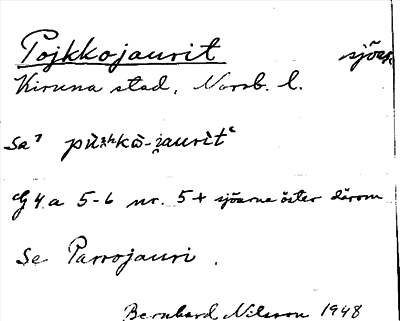 Pojkkojaurit sjöar
Kiruna stad, Norrb. l.
Sa⁷
4a 5-6 nr. 5 + sjöarna öster därom
Se Parrojauri.
Bernhard Nilsson 1948